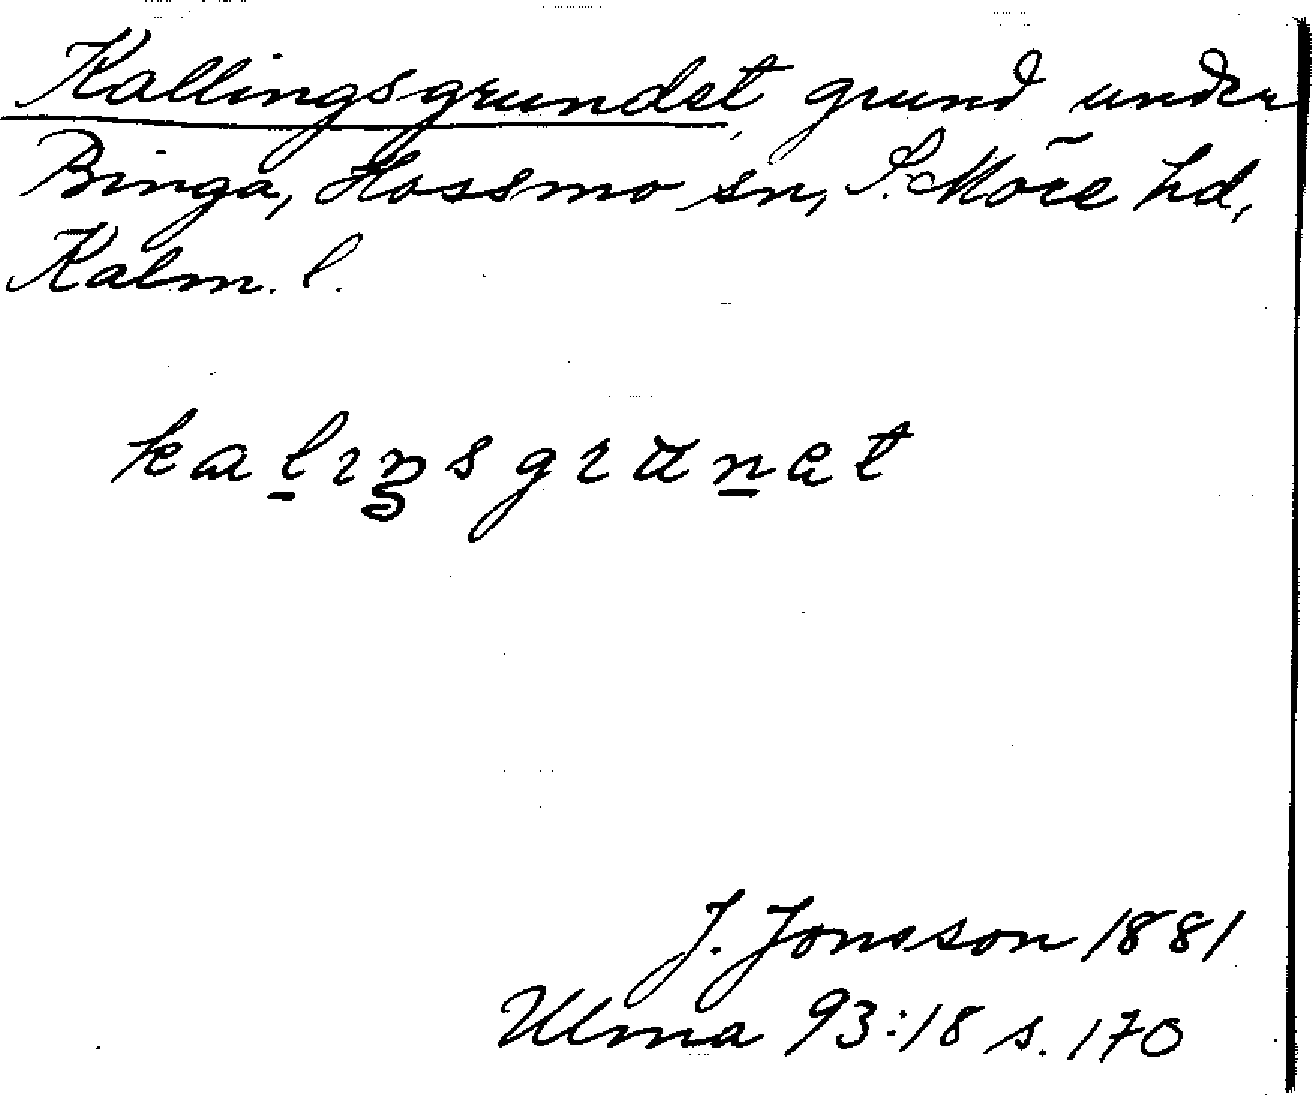 Kallingsgrundet, grund under
Binga, Hossmo sn, S. Möre hd,
Kalm. l.
J. Jonsson 1881
Ulma 93:18 s. 170